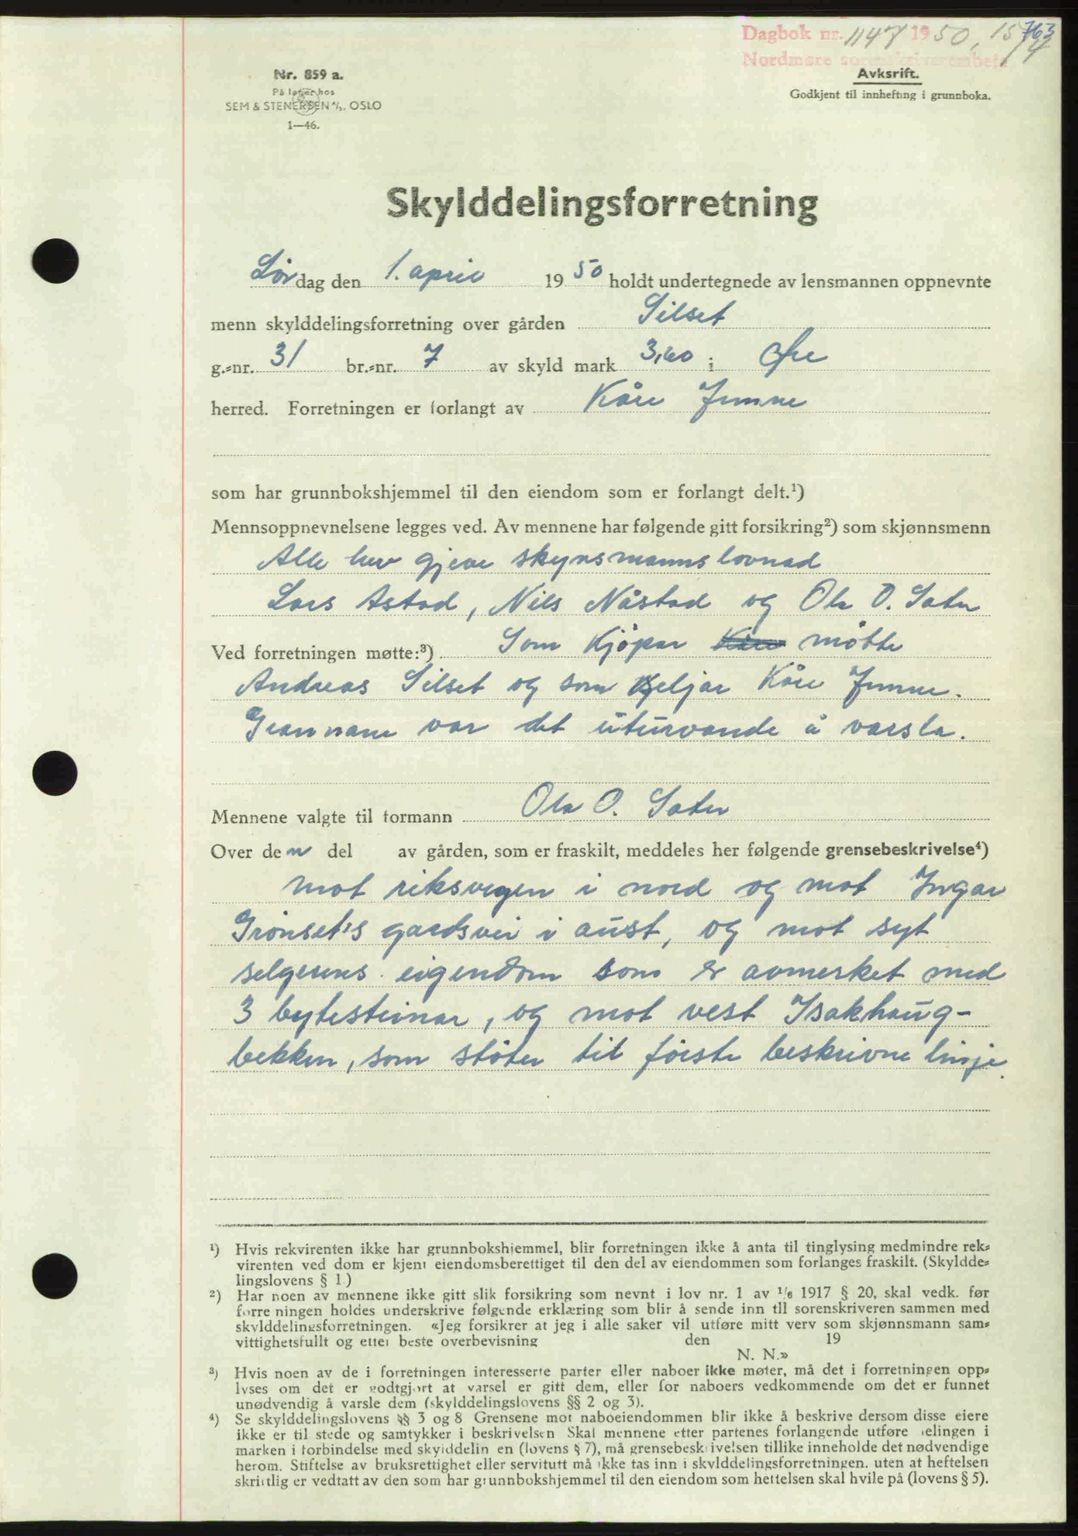 Dagbok nr. 1147 1950, 15/4
763
Nordmøre sorenskriverembete
Nr. 859 a.
På lager hos
SEM & STENERSEN A/S. OSLO
1—46.
Avskrift.
Godkjent til innhefting i grunnboka.
Skylddelingsforretning
Lørdag den 1. april 1950 holdt undertegnede av lensmannen oppnevnte
menn skylddelingsforretning over gården Silset
g.-nr. 31 br.-nr. 7 av skyld mark 3,60 i Øre
herred. Forretningen er forlangt av Kåre
som har grunnbokshjemmel til den eiendom som er forlangt delt.¹)
Mennsoppnevnelsene legges ved. Av mennene har følgende gitt forsikring²) som skjønnsmenn
Alle hev gjeve skynsmannslovnad
Lars Astad, Nils Nåstad og Ola O. Sæter
Ved forretningen møtte:³) Som kjøpar møtte
Andreas Silset og som seljar Kåre
Grannane var det uturvande å varsla.
Mennene valgte til formann Ola O. Sæter
Over den del av gården, som er fraskilt, meddeles her følgende grensebeskrivelse⁴)
mot riksvegen i nord og mot Ingar
Grønset's gardsvei i aust, og mot syt
selgerens eigendom som er avmerket med
3 bytesteinar, og mot vest Isakhaug-
bekken, som støter til første beskrivne linje.
¹) Hvis rekvirenten ikke har grunnbokshjemmel, blir forretningen ikke å anta til tinglysing medmindre rek-
virenten ved dom er kjent eiendomsberettiget til den del av eiendommen som forlanges fraskilt. (Skyldde-
lingslovens § 1.)
²) Har noen av mennene ikke gitt slik forsikring som nevnt i lov nr. 1 av 1/6 1917 § 20, skal vedk. før
forretningen holdes underskrive følgende erklæring som blir å sende inn til sorenskriveren sammen med
skylddelingsforretningen. «Jeg forsikrer at jeg i alle saker vil utføre mitt verv som skjønnsmann sam-
vittighetsfullt og etter beste overbevisning den 19
N. N.»
³) Hvis noen av de i forretningen interesserte parter eller naboer ikke møter, må det i forretningen opp-
lyses om det er godtgjort at varsel er gitt dem, eller for naboers vedkommende om det er funnet
unødvendig å varsle dem (skylddelingslovens §§ 2 og 3).
⁴) Se skylddelingslovens §§ 3 og 8 Grensene mot naboeiendommen blir ikke å beskrive dersom disse eiere
ikke er til stede og samtykker i beskrivelsen Skal mennene etter partenes forlangende utføre delingen i
marken i forbindelse med skylddelingen (lovens § 7), må grensebeskrivelsen tillike inneholde det nødvendige
herom. Stiftelse av bruksrettighet eller servitutt må ikke tas inn i skylddelingsforretningen. uten at heftelsen
skriftlig er vedtatt av den som har grunnbokshjemmel til den eiendom som heftelsen skal hvile på (lovens § 5).